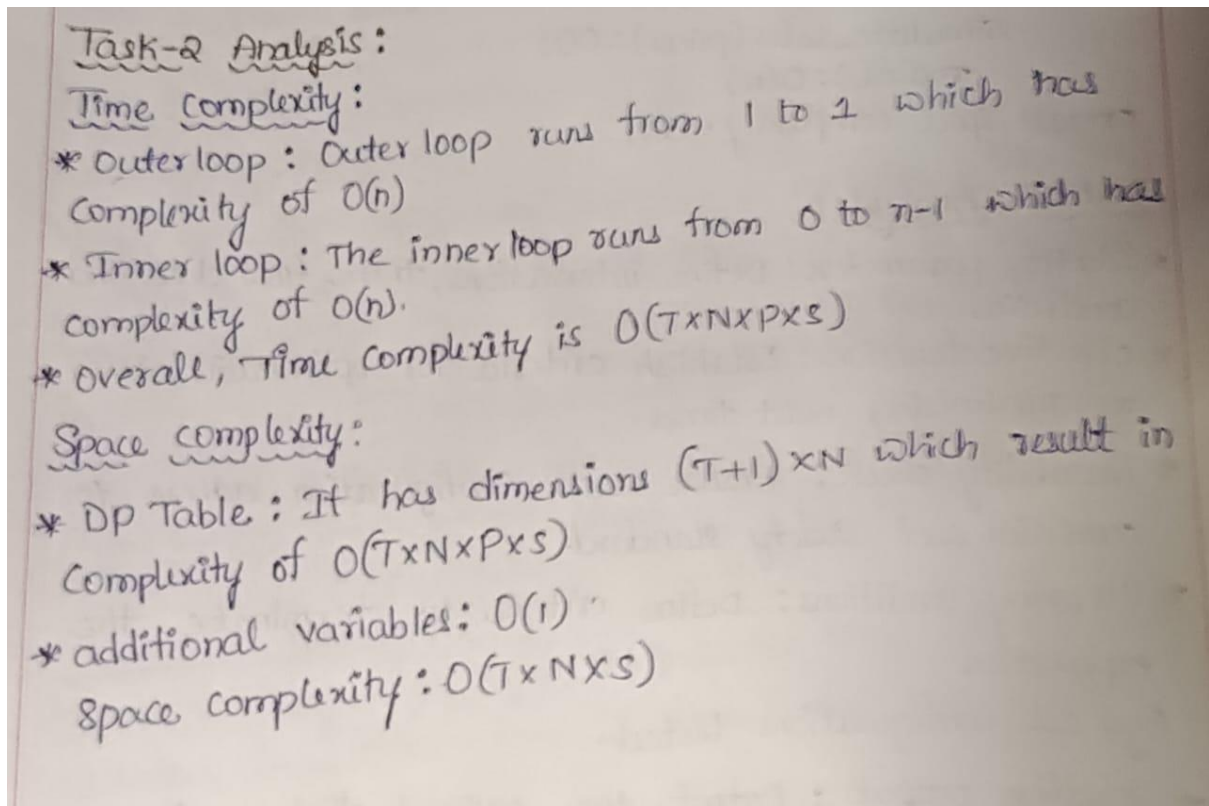 Task-2 Analysis:
Time complexity:
* Outerloop: Outer loop runs from 1 to 1 which has
complexity of O(n)
* Inner loop: The inner loop runs from 0 to n-1 which has
complexity of O(n).
* overall, Time complexity is O(T×N×P×S)
Space complexity:
* DP Table: It has dimensions (T+1)×N which result in
complexity of O(T×N×P×S)
* additional variables: O(1)
space complexity: O(T×N×S)